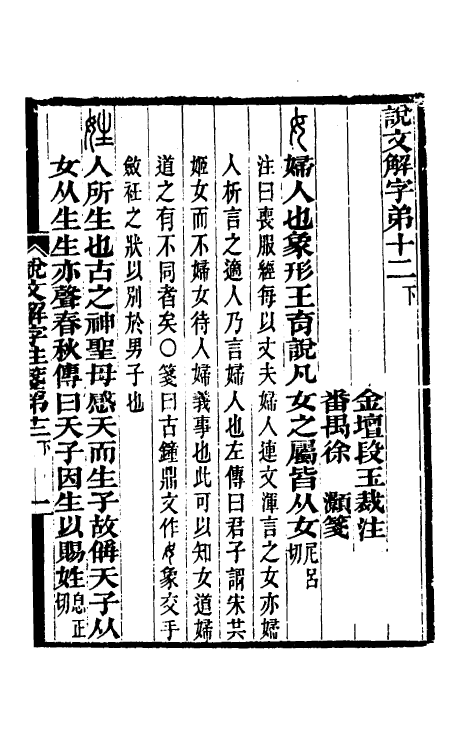 說文解字弟十二下
金壇段玉裁注
番禺徐灝箋
婦人也象形王育說凡女之屬皆从女尼呂切
注曰喪服經每以丈夫婦人連文渾言之女亦婦
人析言之適人乃言婦人也左傳曰君子謂宋共
姬女而不婦女待人婦義事也此可以知女道婦
道之有不同者矣〇箋曰古鐘鼎文作象交手
斂衽之狀以別於男子也
姓人所生也古之神聖母感天而生子故偁天子从
女从生生亦聲春秋傳曰天子因生以賜姓息正切
說文解字注箋第十二下
一